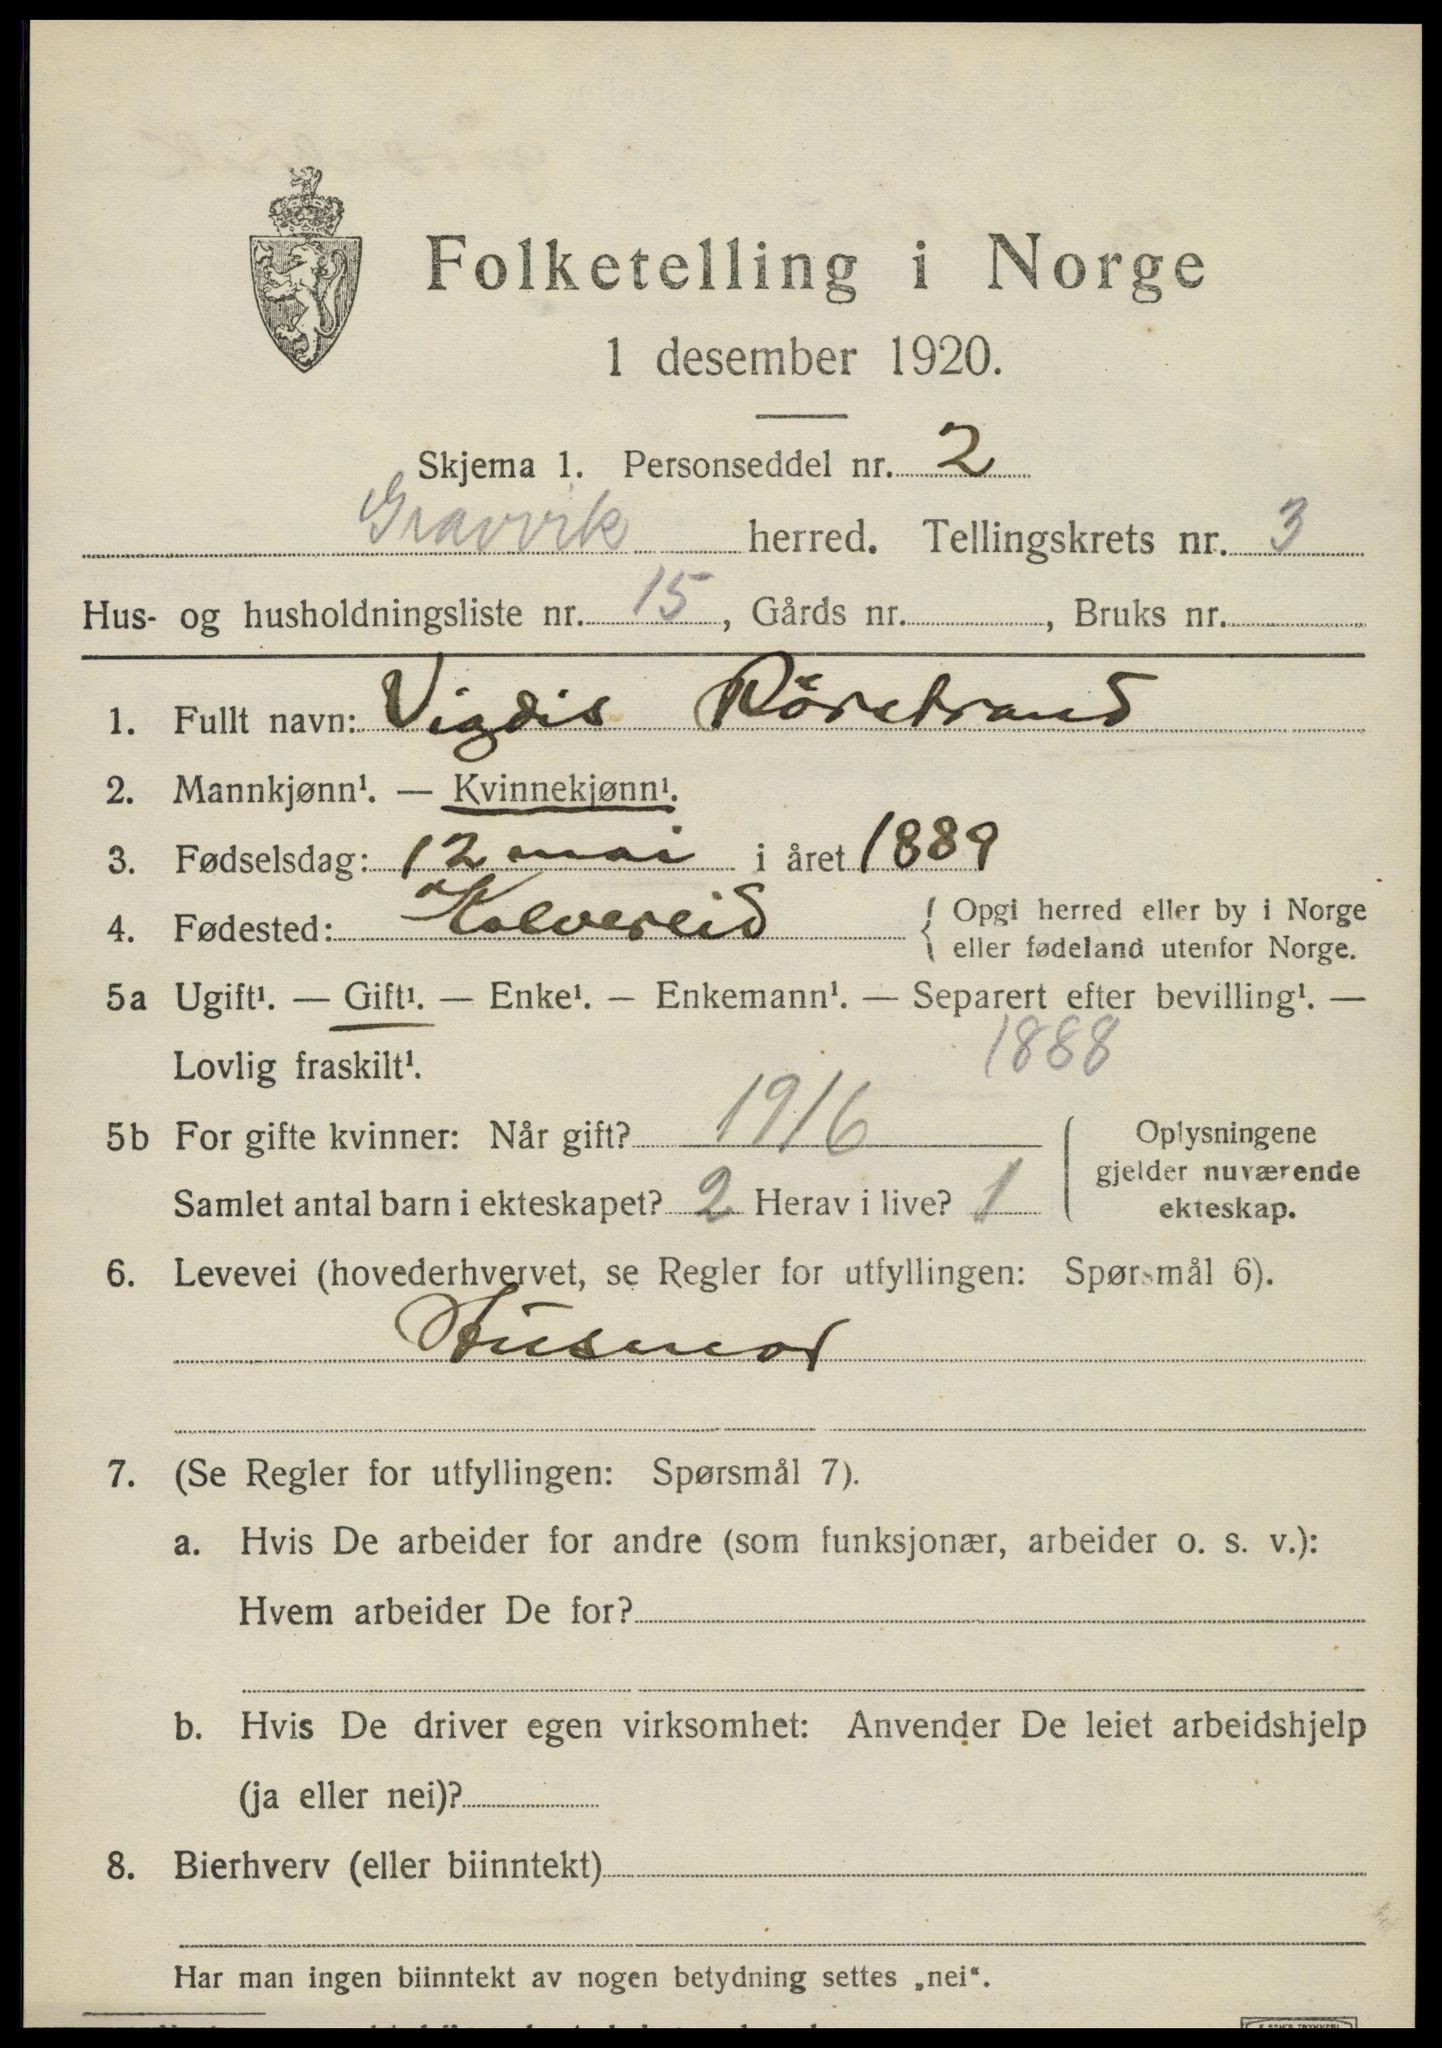 Folketelling i Norge
1 desember 1920.
Skjema 1. Personseddel nr. 2
Gravvik herred. Tellingskrets nr. 3
Hus- og husholdningsliste nr. 15, Gårds nr. , Bruks nr.
1. Fullt navn: Vigdis Rörstrand
2. Mannkjønn¹. — Kvinnekjønn¹.
3. Fødselsdag: 12 mai i året 1889
4. Fødested: Kolvereid { Opgi herred eller by i Norge
eller fødeland utenfor Norge.
5a Ugift¹. — Gift¹. — Enke¹. — Enkemann¹. — Separert efter bevilling¹. —
Lovlig fraskilt¹. 1888
5b For gifte kvinner: Når gift? 1916
Samlet antal barn i ekteskapet? 2 Herav i live? 1
Oplysningene
gjelder nuværende
ekteskap.
6. Levevei (hovederhvervet, se Regler for utfyllingen: Spørsmål 6).
Husmor
7. (Se Regler for utfyllingen: Spørsmål 7).
a. Hvis De arbeider for andre (som funksjonær, arbeider o. s. v.):
Hvem arbeider De for?
b. Hvis De driver egen virksomhet: Anvender De leiet arbeidshjelp
(ja eller nei)?
8. Bierhverv (eller biinntekt)
Har man ingen biinntekt av nogen betydning settes „nei“.